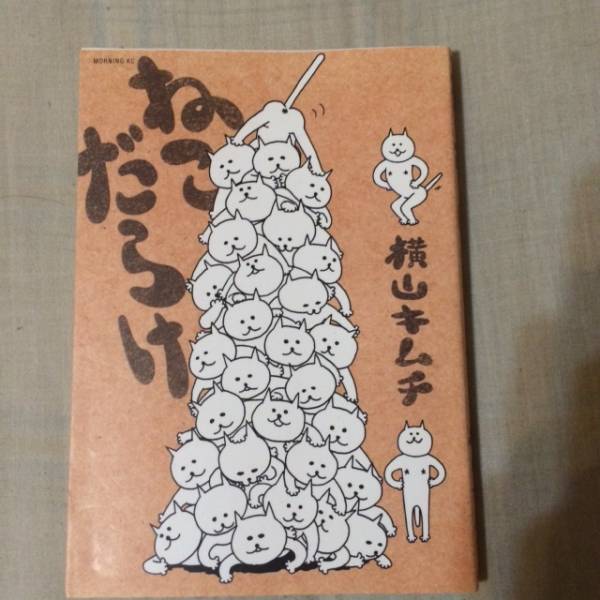 MORNING KC
ねこ
だらけ
横山キムチ